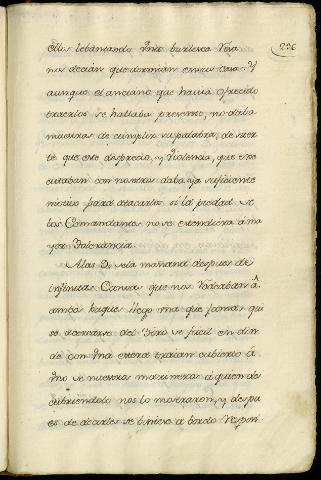 236
ellos lebantando una burlesca Voya
nos decian que dormian en su casa. Y
aunque el anciano que havia ofrecido
traerlos se hallaba presente, no daba
muestras de cumplir su palabra, de suer
te que este desprecio, y Violencia, que exe
cutaban con nosotros daba ya suficiente
motivo para atacarlos si la piedad de
los Comandantes no se estendiera á ma
yor tolerancia.
A las 9 de la mañana despues de
infinitas Canoas que nos rodeaban á
ambos buques llego una que jamas qui
so acercarse del Bordo
de con una estera traian cubierto á
uno de nuestros marineros á quien des
cubriendolo nos lo mostraron, y despu
es de decirles se viniese a bordo respon